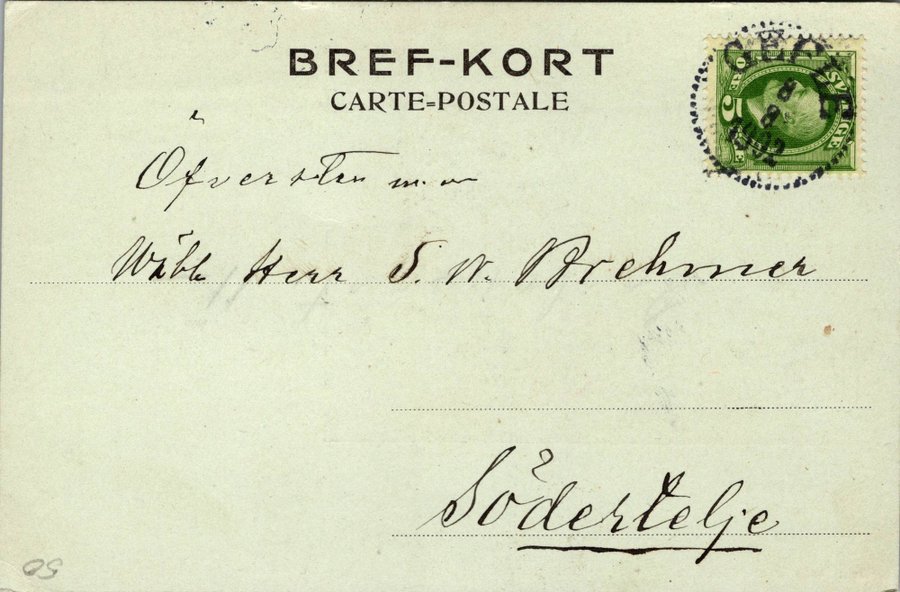 BREF-KORT
CARTE=POSTALE
GEFLE
8
8
1902
SVERIGE
5
ÖRE
Öfversten m.m
Wälb Herr S. W. Brehmer
Södertelje
50